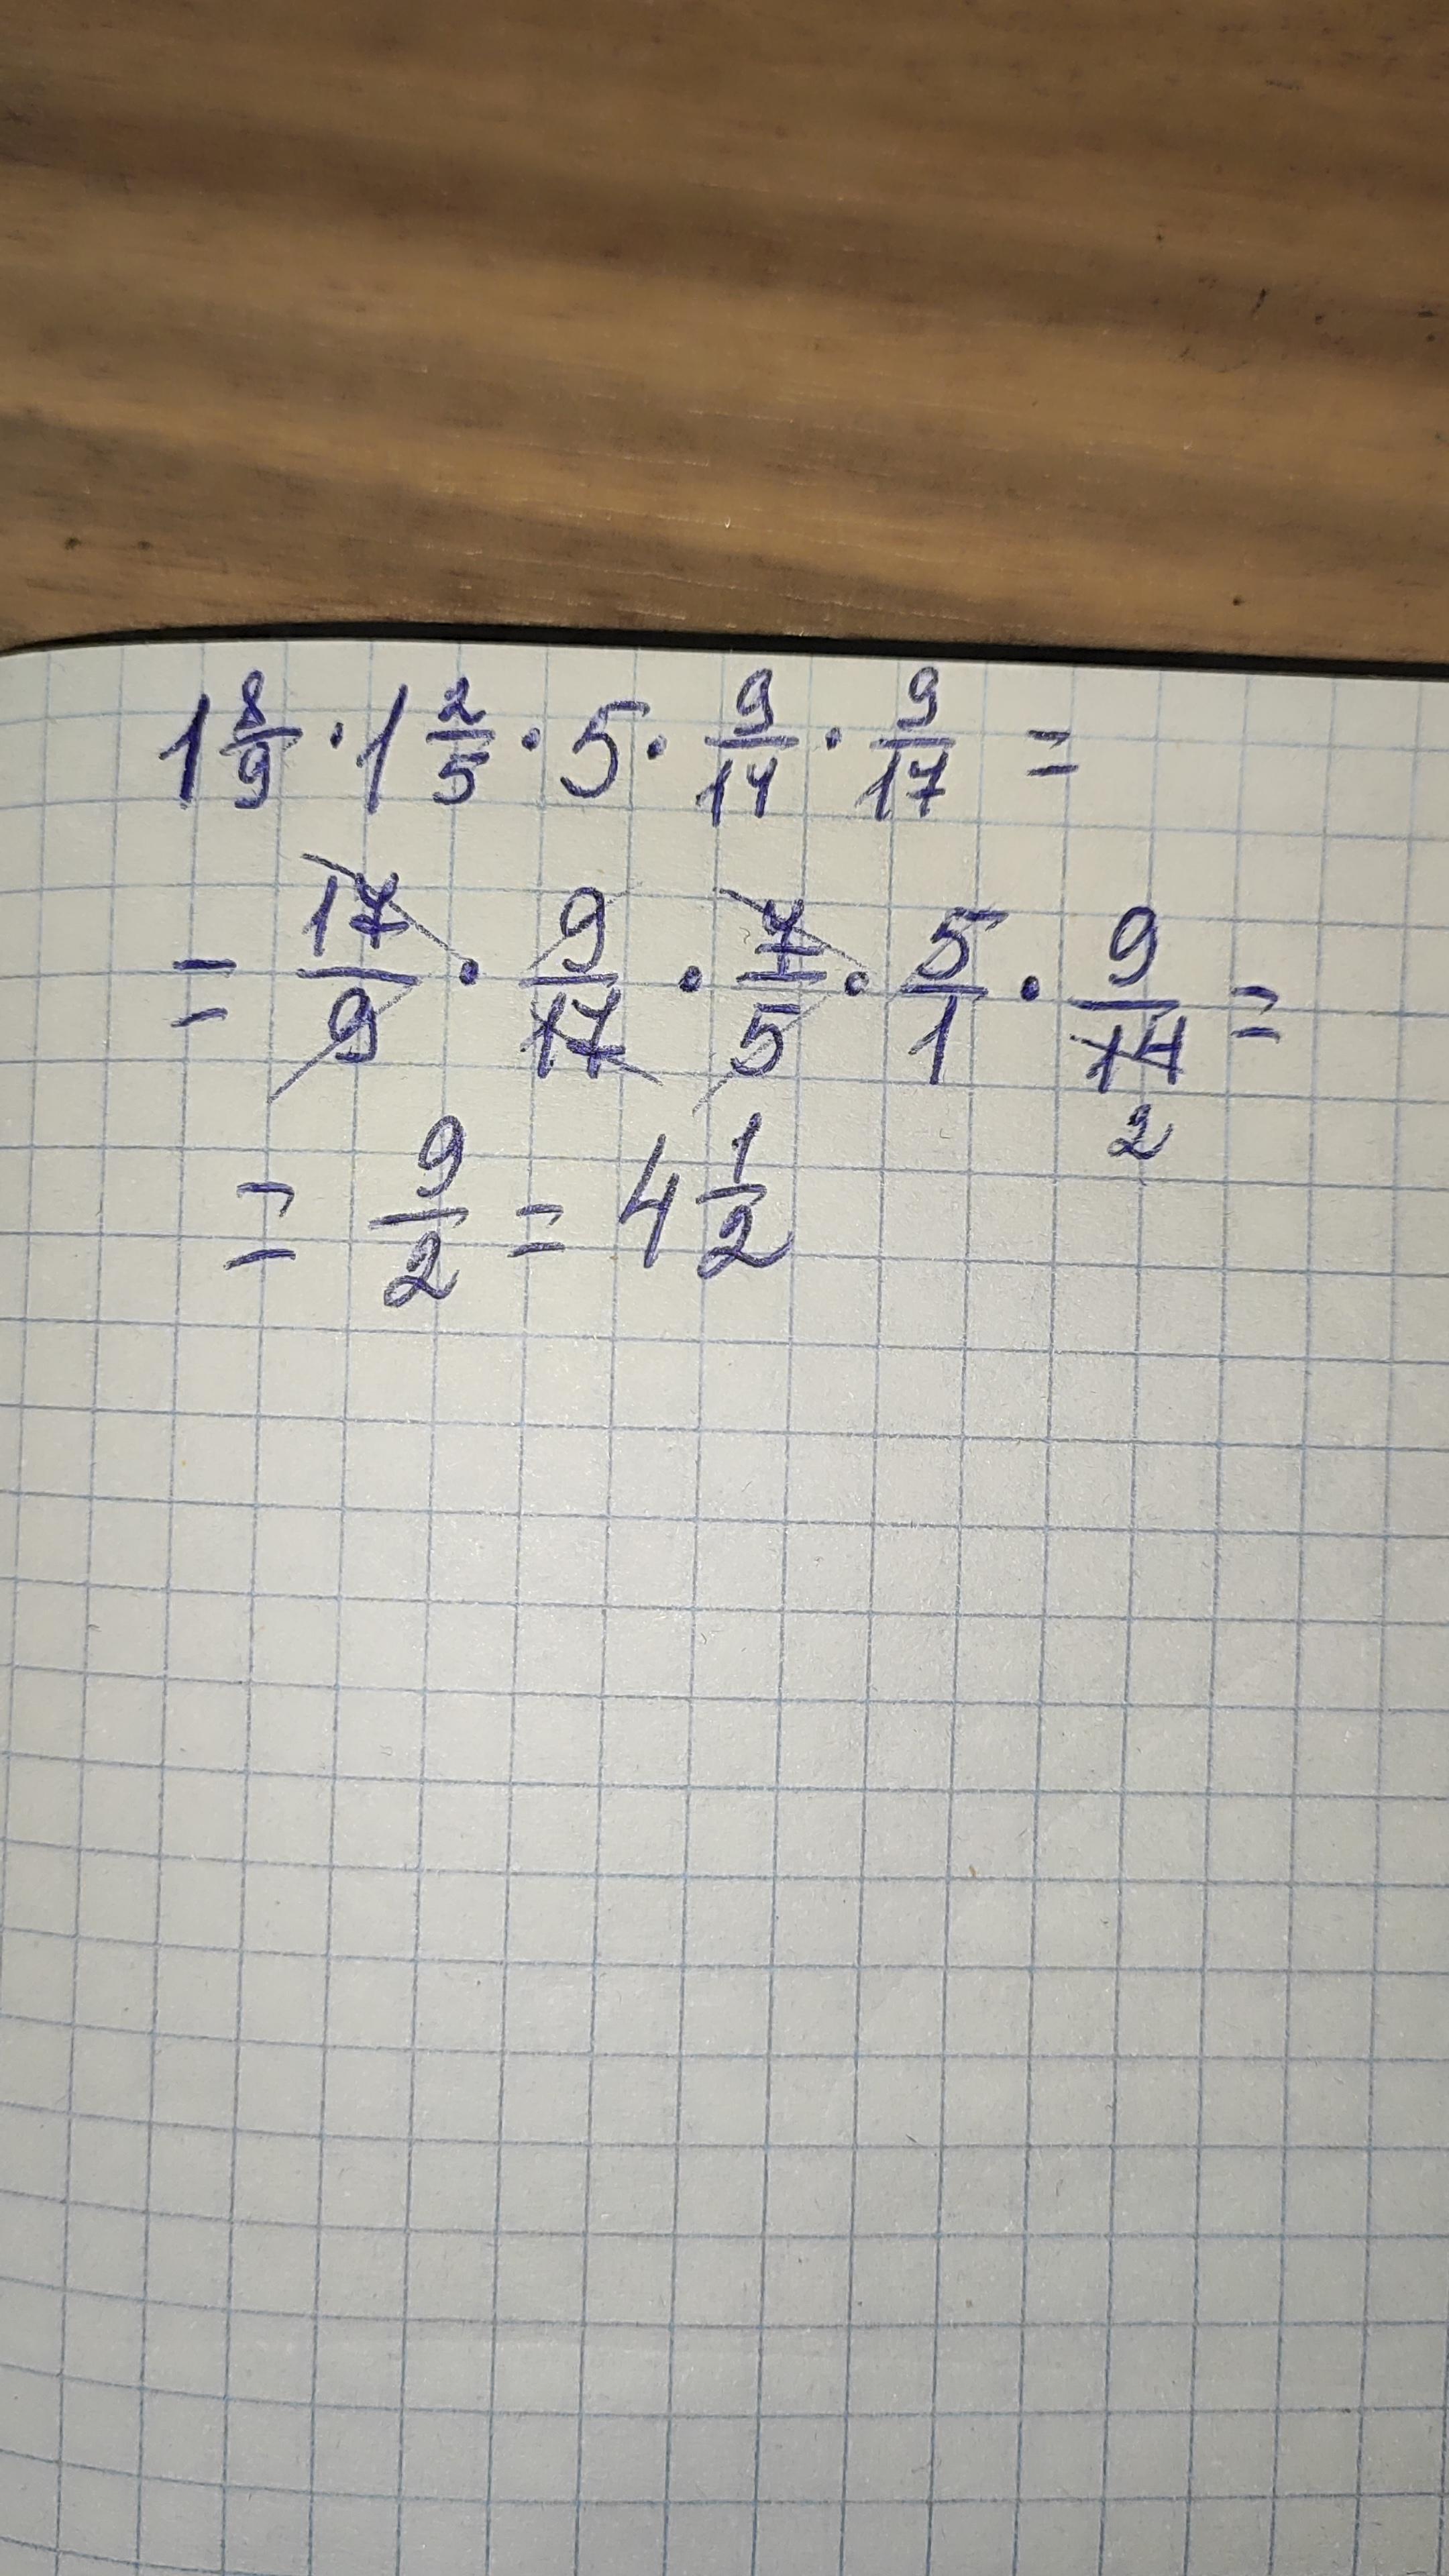 1 8/9 · 1 2/5 · 5 · 9/14 · 9/17 =
= 17/9 · 9/17 · 7/5 · 5/1 · 9/14 =
2
= 9/2 = 4 1/2